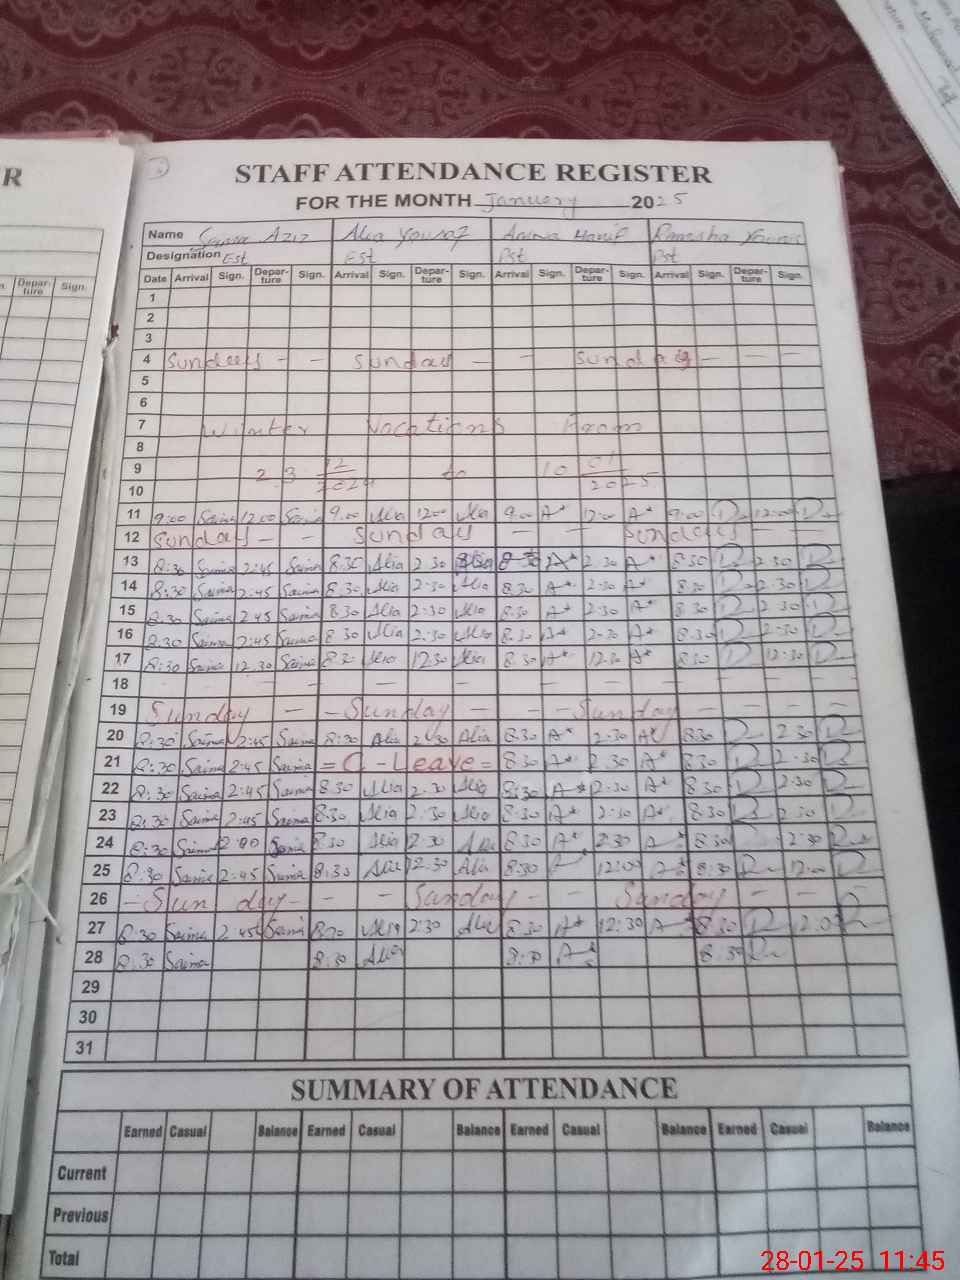 R
STAFF ATTENDANCE REGISTER
FOR THE MONTH January 2025
Name Saima Aziz Alia Yousaf Amna Hanif Ramsha Younis
Designation Est Est Pst Pst
Date Arrival Sign. Depar-ture Sign. Arrival Sign. Depar-ture Sign. Arrival Sign. Depar-ture Sign. Arrival Sign. Depar-ture Sign.
Depar-ture Sign.
1
2
3
4 Sundays - - Sunday - - Sunday - - -
5
6
7 Winter Vocations From
8
9 23 12/2024 to 10 01/2025
10
11 9:00 Saima 12:00 Saima 9.00 Alia 1200 Alia 9:00 A* 12:00 A* 9:00 12:00
12 Sundays - - Sunday - - Sundays - -
13 8:30 Saima 2:45 Saima 8:30 Alia 2:30 Alia 8:30 A* 2:30 A* 8:30 2:30
14 8:30 Saima 2:45 Saima 8.30 Alia 2:30 Alia 8:30 A* 2:30 A* 8:30 2:30
15 8:30 Saima 2:45 Saima 8:30 Alia 2:30 Alia 8:30 A* 2:30 A* 8:30 2:30
16 8:30 Saima 2:45 Saima 8:30 Alia 2:30 Alia 8:30 A* 2:30 A* 8:30 2:30
17 8:30 Saima 12.30 Saima 8:30 Alia 12:30 Alia 8:30 A* 12:30 A* 8:30 12:30
18 - - - - - - - - - - - - -
19 Sunday - - Sunday - - - Sunday - - - -
20 8:30 Saima 2:45 Saima 8:30 Alia 2:30 Alia 8:30 A* 2:30 A* 8:30 2:30
21 8:30 Saima 2:45 Saima = C - Leave = 8:30 A* 2:30 A* 8:30 2:30
22 8:30 Saima 2:45 Saima 8:30 Alia 2:30 Alia 8:30 A* 2:30 A* 8:30 2:30
23 8:30 Saima 2:45 Saima 8:30 Alia 2:30 Alia 8:30 A* 2:30 A* 8:30 2:30
24 8:30 Saima 2:00 Saima 8:30 Alia 12:30 Alia 8:30 A* 2:30 A* 8:30 2:30
25 8:30 Saima 2:45 Saima 8:30 Alia 12:30 Alia 8:30 A* 12:00 A* 8:30 12:00
26 - Sunday - - - Sunday - - Sunday - - -
27 8:30 Saima 2:45 Saima 8:30 Alia 2:30 Alia 8:30 A* 12:30 A* 8:30 2:0
28 8:30 Saima 8:30 Alia 8:30 A* 8:30
29
30
31
SUMMARY OF ATTENDANCE
Earned Casual Balance Earned Casual Balance Earned Casual Balance Earned Casual Balance
Current
Previous
Total
28-01-25 11:45